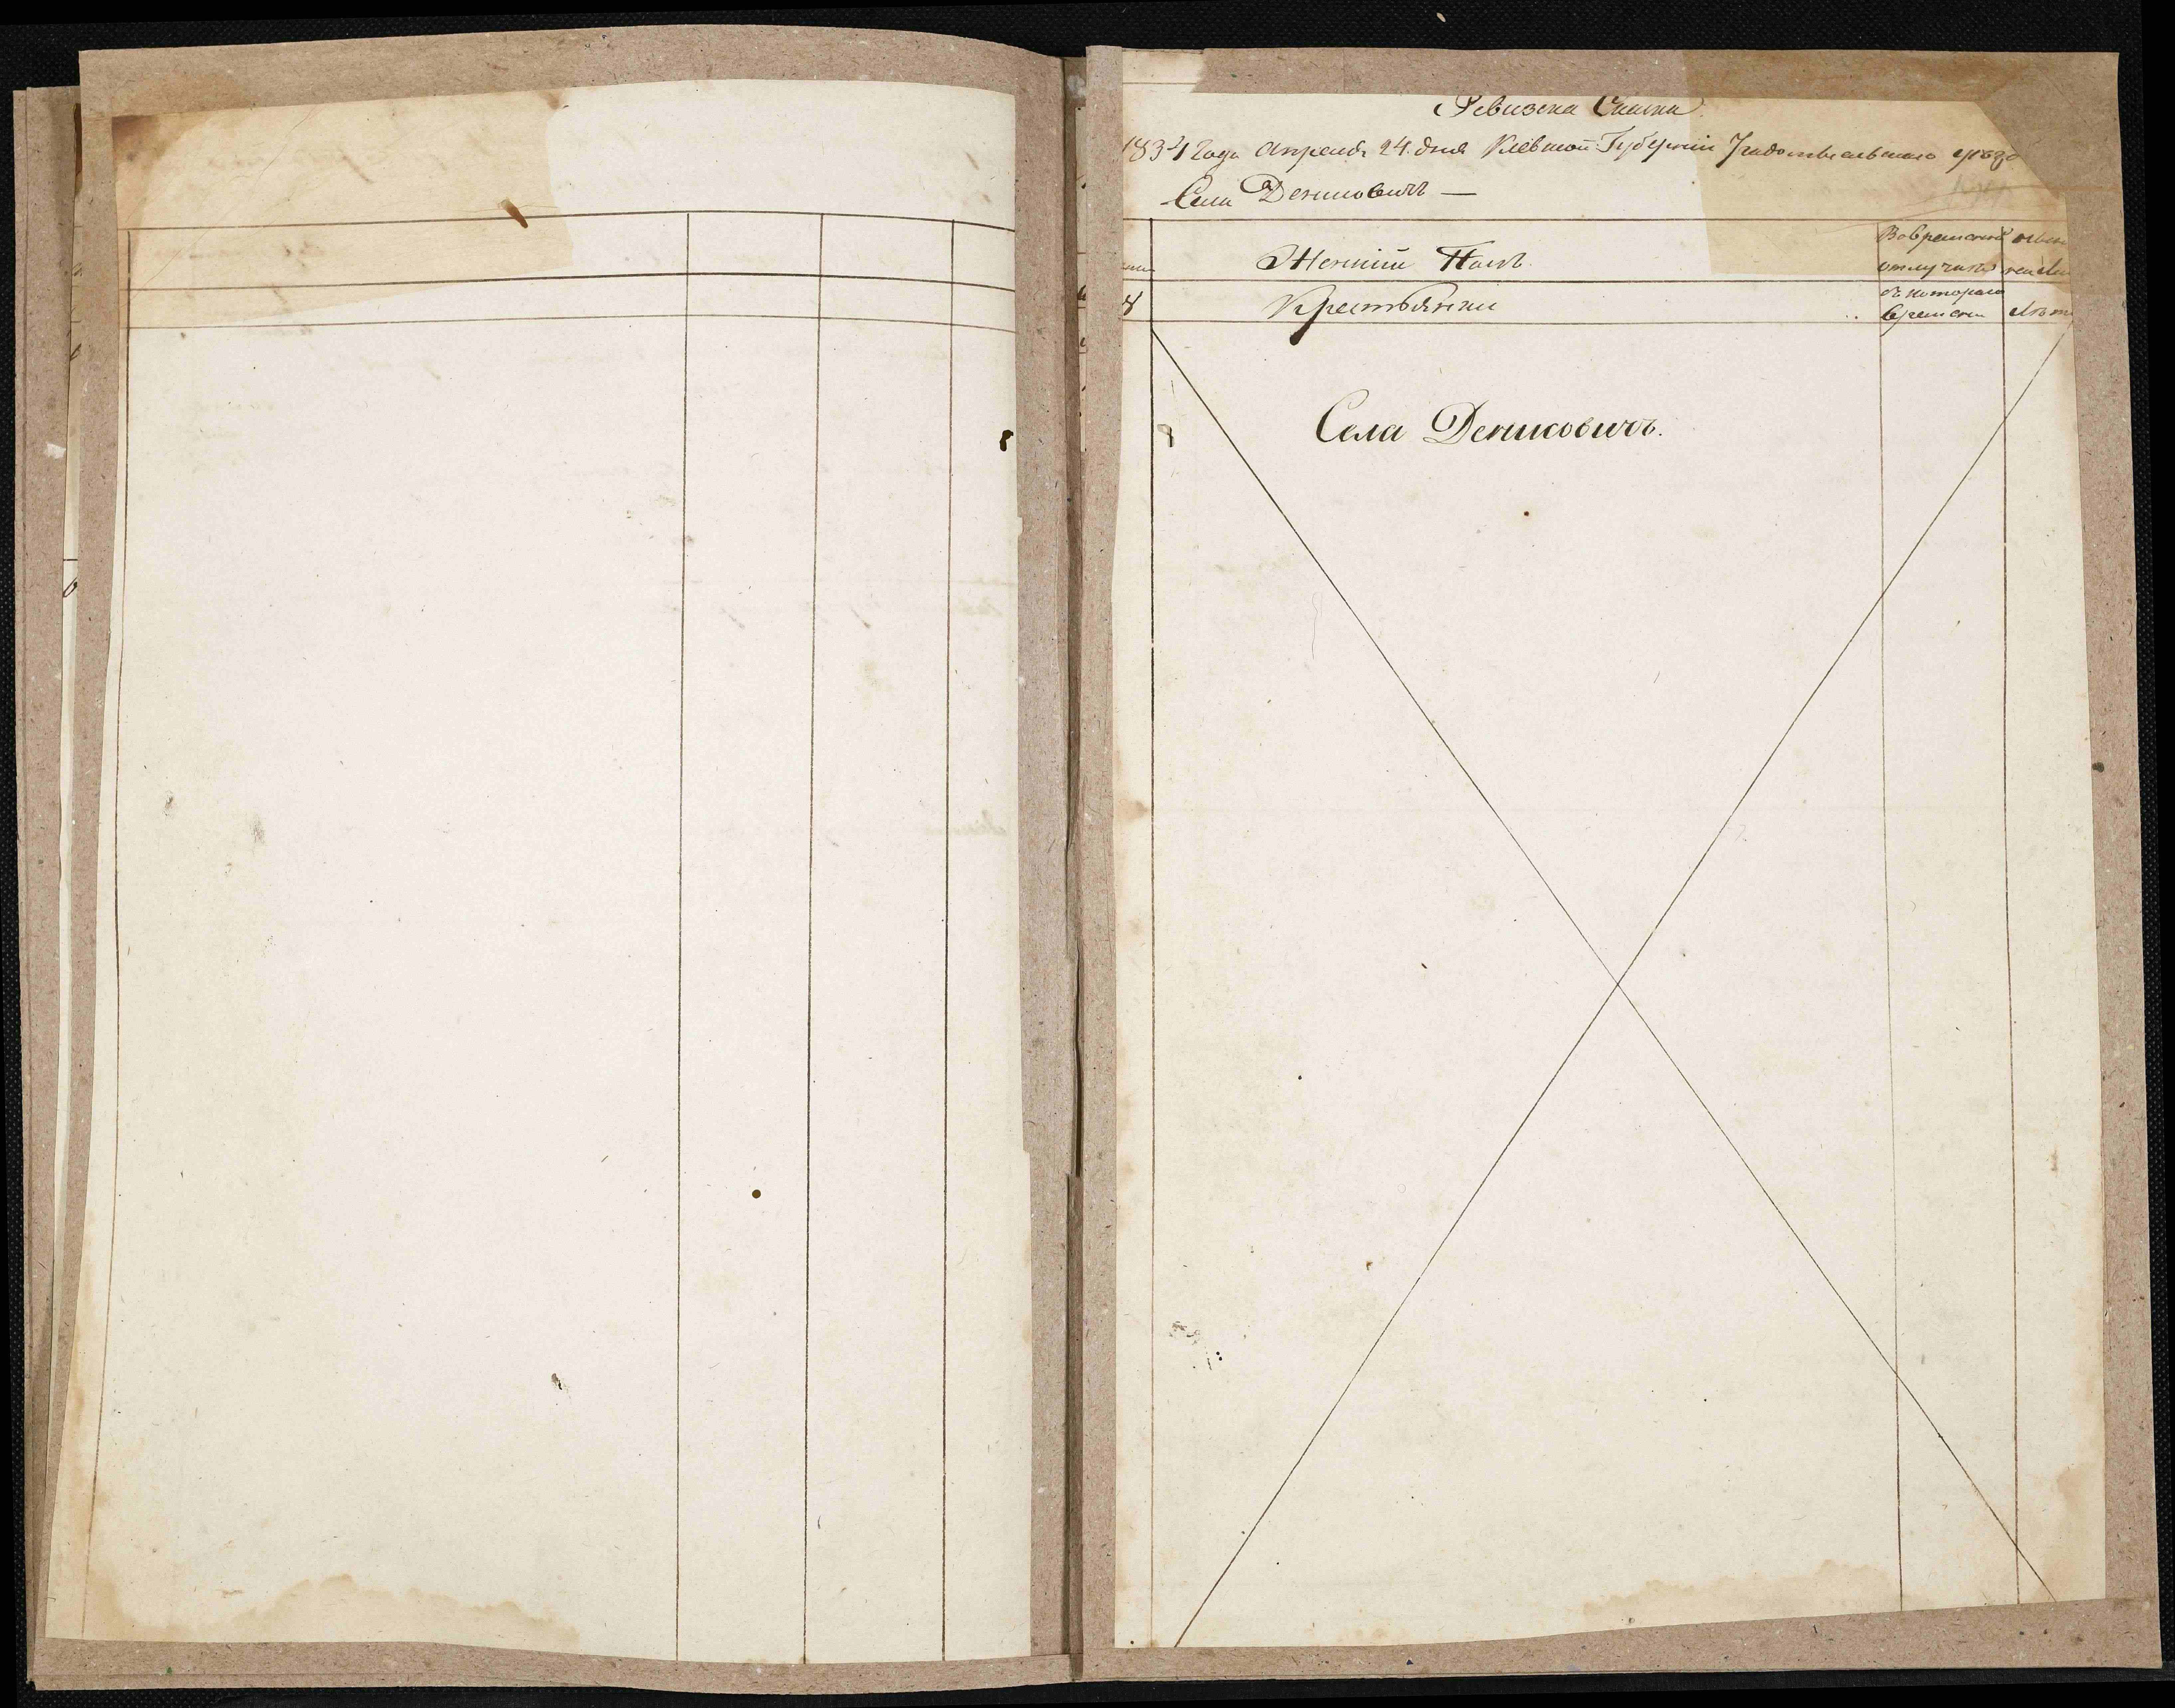 Ревизска Скаска.
1834 года Апреля 24. дня Киевской Губернии Радомысльскаго уѣзда
Села Денисовичъ —
Женскій Полъ.
Вовременной
отлучкѣ
Крестьянки
съ котораго
времени
Лѣта
Села Денисовичъ.